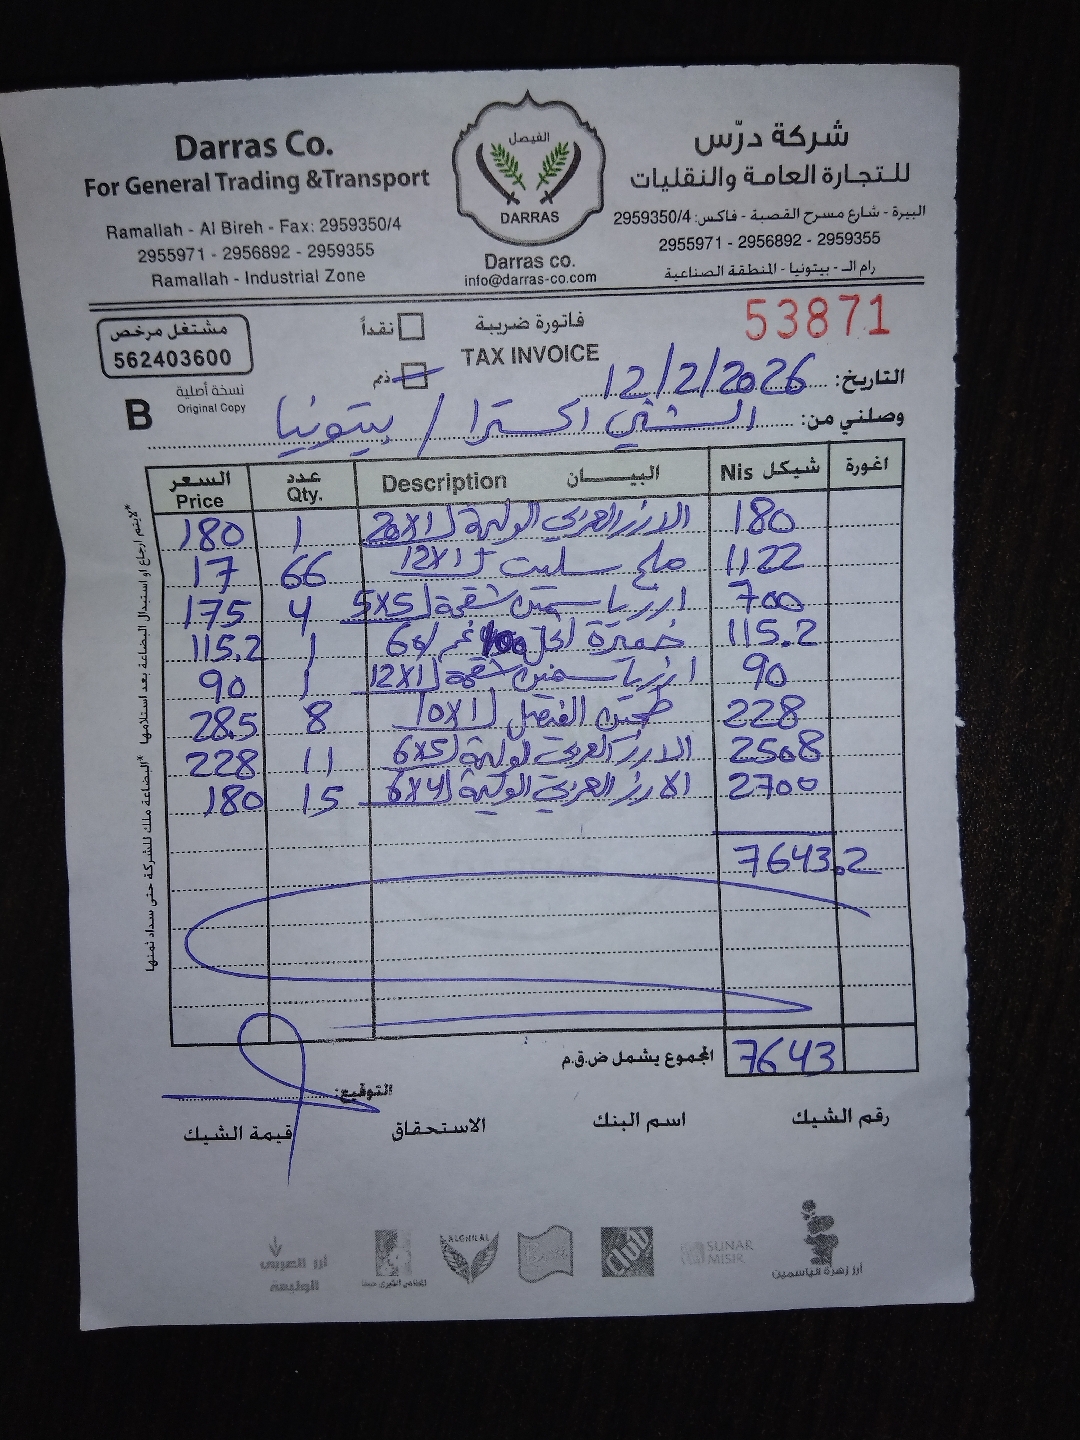 Darras Co.
For General Trading &Transport
Ramallah - Al Bireh - Fax: 2959350/4
2955971 - 2956892 - 2959355
Ramallah - Industrial Zone
الفيصل
DARRAS
Darras co.
info@darras-co.com
شركة درّس
للتجارة العامة والنقليات
البيرة - شارع مسرح القصبة - فاكس: 2959350/4
2955971 - 2956892 - 2959355
رام الـ - بيتونيا - المنطقة الصناعية
مشتغل مرخص
562403600
نقداً
ذمم
فاتورة ضريبة
TAX INVOICE
53871
نسخة أصلية
Original Copy
B
التاريخ: 12/2/2026
وصلني من: الشني اكسترا / بيتونيا
السعر عدد البيــــان شيكل اغورة
Price Qty. Description Nis
180 1 الارز العربي الوليمة 20X1 180
17 66 ملح سليت 12X1 1122
175 4 ارز ياسمين شقحة 5X5 700
115.2 1 خميرة 100 غم /60 115.2
90 1 ارز ياسمين شقحة 12X1 90
28.5 8 طحين الفيصل 10X1 228
228 11 الارز العربي الوليمة 6X5 2508
180 15 الارز العربي الوليمة 6X4 2700
7643.2
المجموع يشمل ض.ق.م 7643
التوقيع:
رقم الشيك اسم البنك الاستحقاق قيمة الشيك
*لايتم ارجاع او استبدال البضاعة بعد استلامها *البضاعة ملك للشركة حتى سداد ثمنها
أرز العربي
الوليمة
ALGHILAL
Club
SUNAR
MISIR
أرز زهرة الياسمين